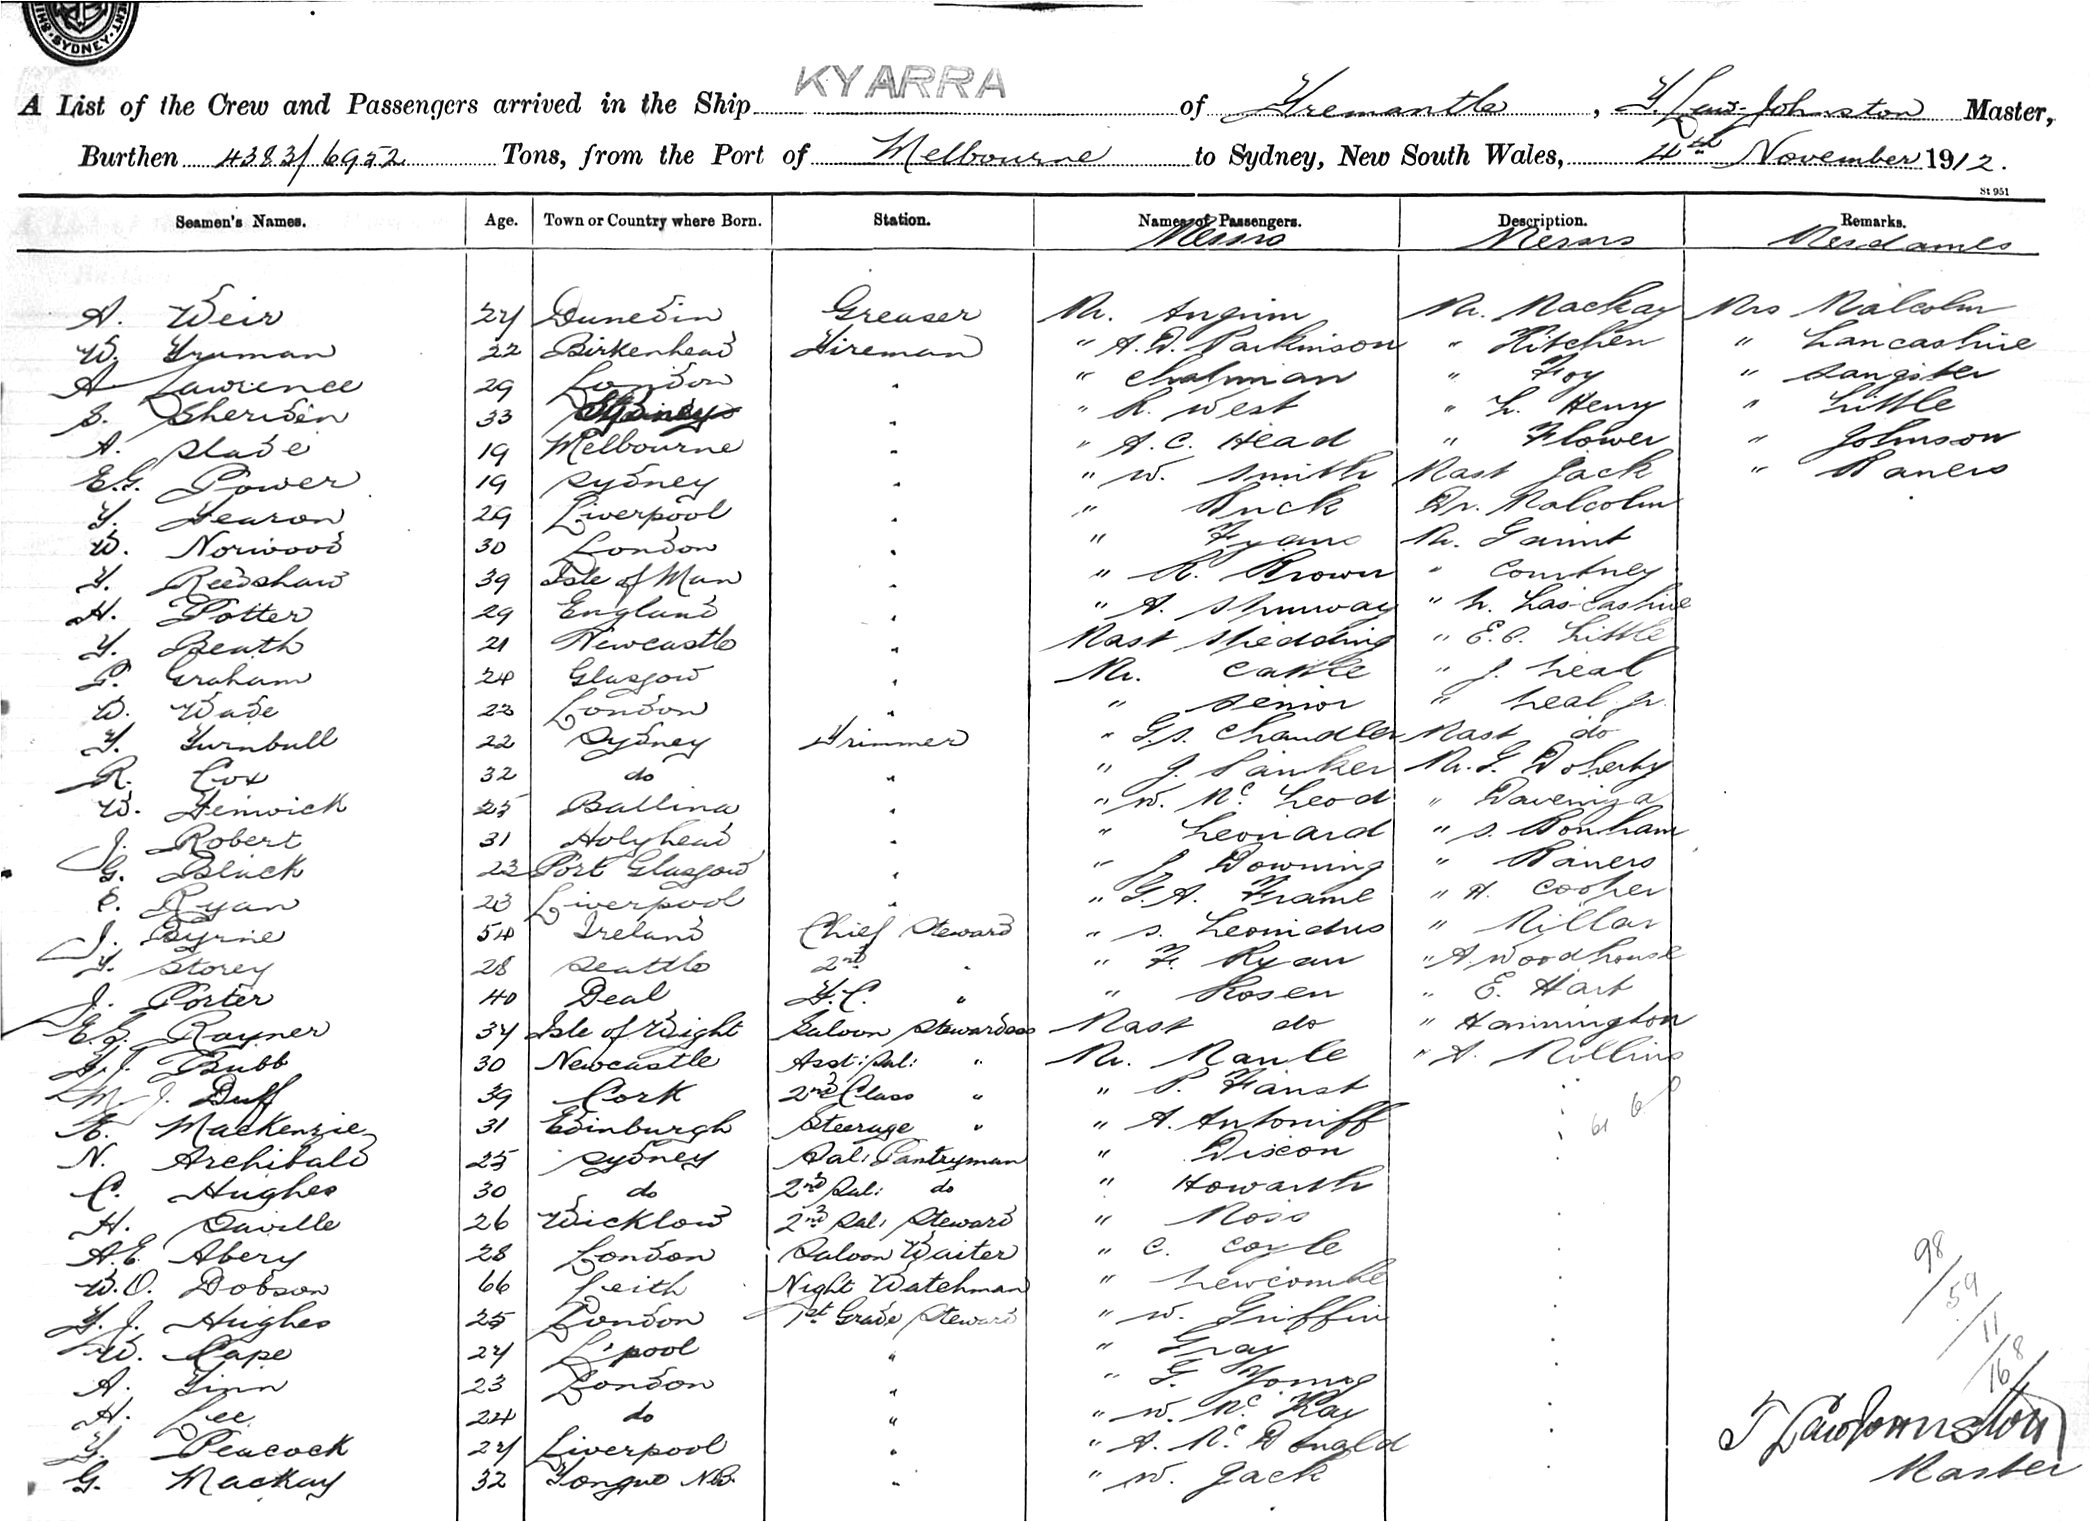 SYDNEY
KYARRA
A List of the Crew and Passengers arrived in the Ship of Fremantle, Master,
Burthen 4383/6952 Tons, from the Port of Melbourne to Sydney, New South Wales, 4th November 1912.
St 951
Seamen's Names. Age. Town or Country where Born. Station. Names of Passengers. Description. Remarks.
Messrs Messrs Mesdames
A. Weir 27 Dunedin Greaser Mr. Angwin Mr. Mackay Mrs Malcolm
W. Truman 22 Birkenhead Fireman " A.D. Parkinson " Kitchen " Lancashire
A Lawrence 29 London " " Chapman " Foy " Sangster
S. Sheriden 33 Sydney " " R. West " L. Henry " Little
A. Slade 19 Melbourne " " A.C. Head " Flower " Johnson
E.G. Power 19 Sydney " " W. Smith Mast Jack " Raners
T. Fearon 29 Liverpool " " Ruck Dr. Malcolm
W. Norwood 30 London " " Fyans Mr. Gaunt
T. Reedshaw 39 Isle of Man " " R. Brown " Courtney
H. Potter 29 England " " A. Shumway " L. Lascashire
T. Beath 21 Newcastle " Mast Shedding " E.C. Little
P. Graham 24 Glasgow " Mr. Cattle " J. Leal
W. Wade 23 London " " Senior " Leal Jr.
T. Turnbull 22 Sydney Trimmer " G.S. Chandler Mast do
R. Cox 32 do " " J. Mr. G. Doherty
W. Fenwick 25 Ballina " " W. McLeod "
J. Robert 31 Holyhead " " Leonard " S. Bonham
G. Black 23 Port Glasgow " " J. Downing " Raners
E. Ryan 23 Liverpool " " G.A. Frame " H. Cooper
J. Byrne 54 Ireland Chief Steward " S. Leonidus " Millar
T. Storey 28 Seattle 2nd " " F. Ryan " A. Woodhouse
J. Porter 40 Deal F.C. " " Rosen " E. Hart
E.G. Rayner 37 Isle of Wight Saloon Stewardess Mast do " Hannington
Bubb 30 Newcastle Asst: Sal: " Mr. Manle " A. Mollins
M. J. Duff 39 Cork 2nd Class " " P. Faust
A. Mackenzie 31 Edinburgh Steerage " " A. Antoniff
N. Archibald 25 Sydney Sal: Pantryman " Discon
C. Hughes 30 do 2nd Sal: do " Howarth
H. Saville 26 Wicklow 2nd Sal: Steward " Moss
A.E. Abery 28 London Saloon Waiter " C. Coyle
W.O. Dobson 66 Leith Night Watchman " Newcombe
T. J. Hughes 25 London 1st Grade Steward " W. Griffin
W. Cape 27 L'pool " " Gray
A. Finn 23 London " " G. Young
H. Lee 24 do " " W. McKay
T. Peacock 27 Liverpool " " A. McDonald
G. Mackay 32 Tongue N.B. " " W. Jack
98/59/11/168
T Law Johnston
Master